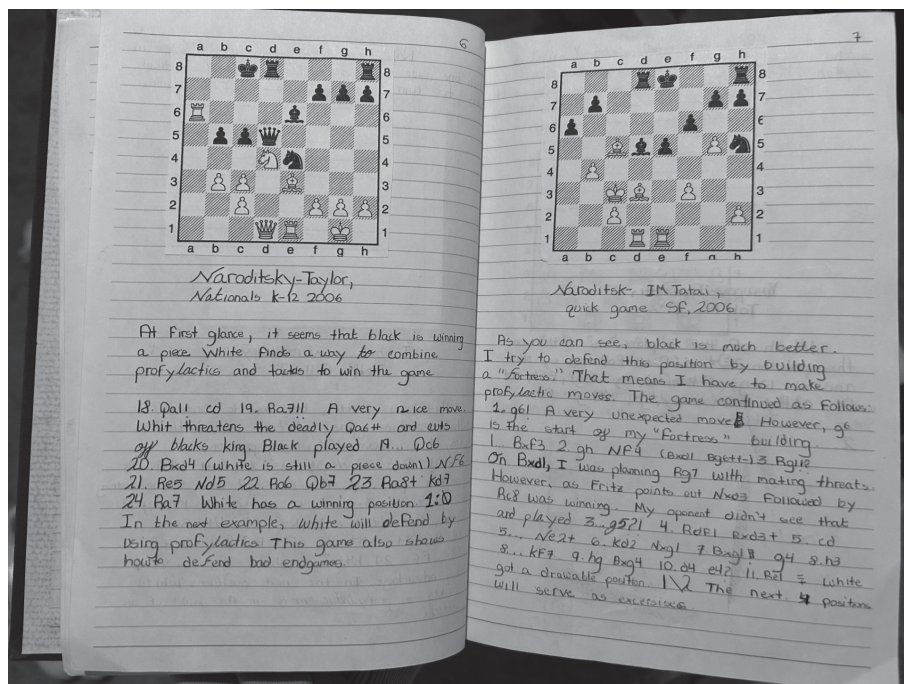 6
a b c d e f g h
8 8
7 7
6 6
5 5
4 4
3 3
2 2
1 1
a b c d e f g h
Naroditsky-Taylor,
Nationals K-12 2006
At first glance, it seems that black is winning
a piece White finds a way to combine
profylactics and tactics to win the game
18. Qa1! cd 19. Ra7!! A very nice move.
Whit threatens the deadly Qa6++ and cuts
off blacks king. Black played A... Qc6
20. Bxd4 (white is still a piece down!) Nf6
21. Re5 Nd5 22. Ra6 Qb7 23 Ra8+ Kd7
24. Ra7 White has a winning position 1:0
In the next example, white will defend by
using profylactics This game also shows
howto defend bad endgames.
7
a b c d e f g h
8 8
7 7
6 6
5 5
4 4
3 3
2 2
1 1
a b c d e f g h
Naroditsk- IM Tatai,
quick game SF, 2006
As you can see, black is much better.
I try to defend this position by building
a "fortress." That means I have to make
profylactic moves. The game continued as follows:
1. g6! A very unexpected move However, g6
is the start of my "fortress" building.
1. Bxf3 2. gh Nf4 (Bxd1 Bg6++-) 3 Rg1!
On Bxd1, I was planning Rg7 with mating threats.
However, as Fritz points out Nxd3 followed by
Rc8 was winning. My oponent didn't see that
and played 3...g5?! 4. Rdf1 Rxd3+ 5. cd
5... Ne2+ 6. Kd2 Nxg1 7 Rxg1 g4 8. h3
8... Kf7 9. hg Bxg4 10. d4 e4? 11. Re1 = white
got a drawable position. 1\2 The next 4 positions
will serve as excersises